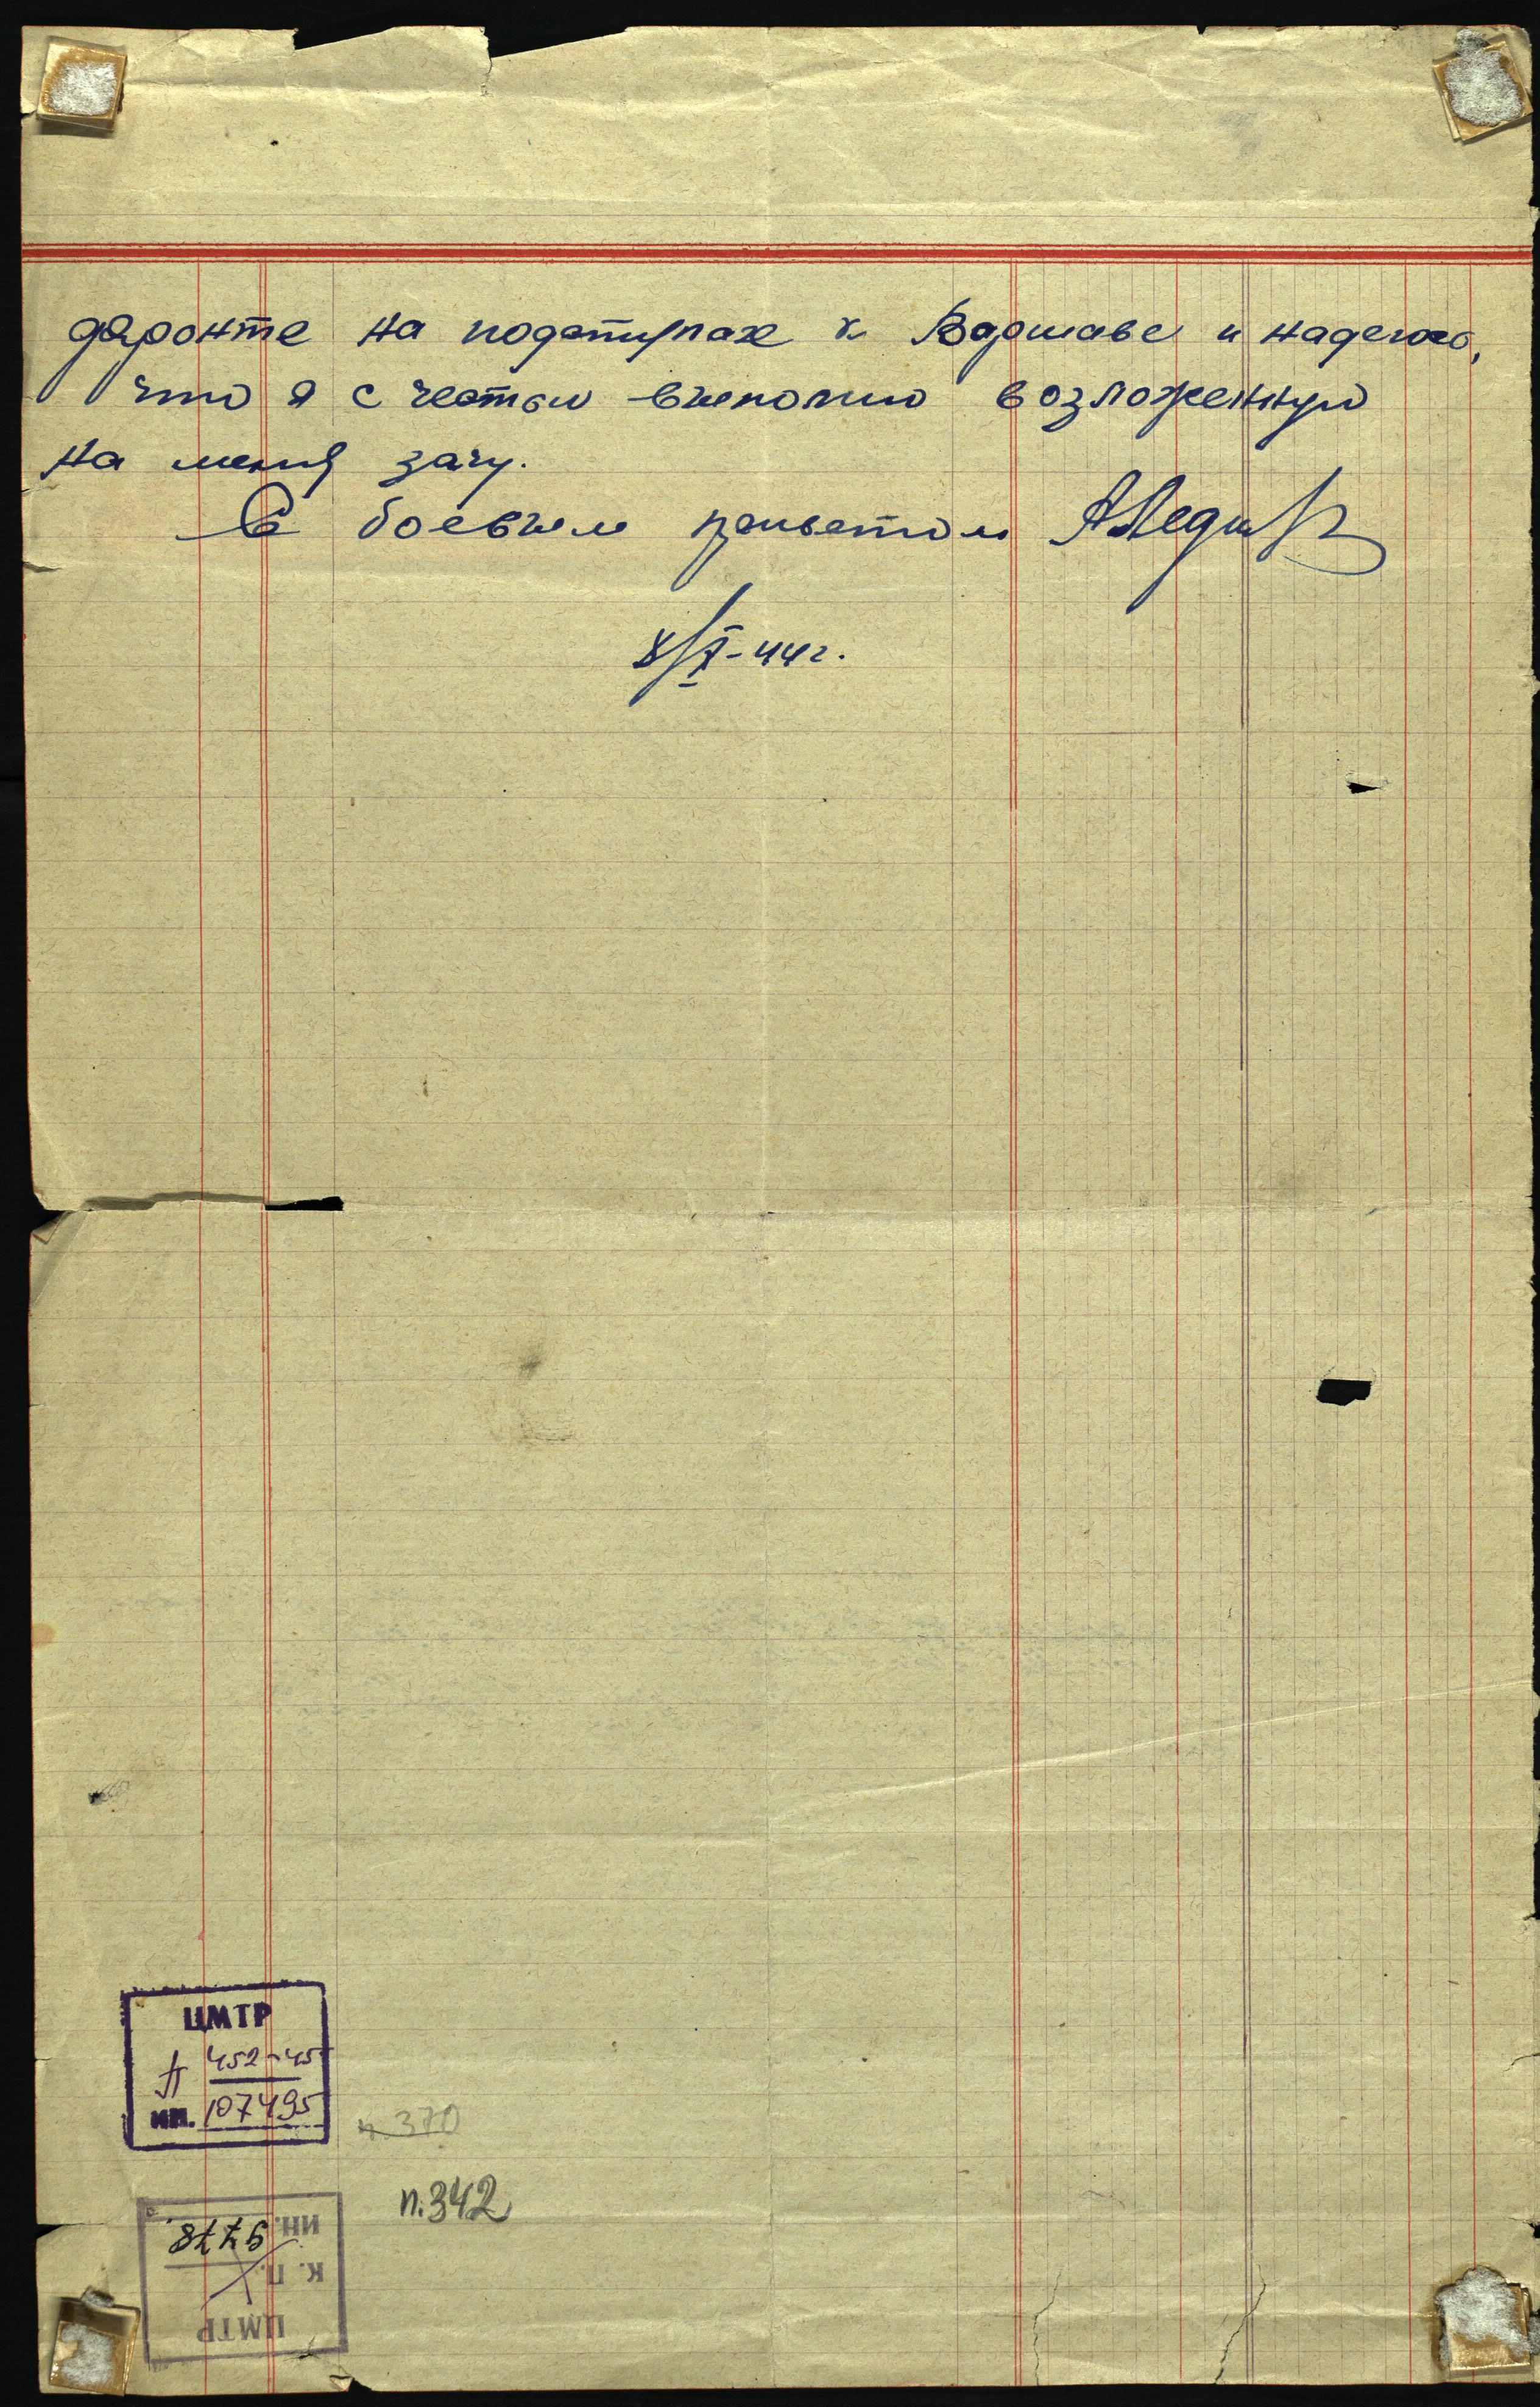 фронте на подступах к Варшаве и надеюсь,
что я с честью выполню возложенную
на меня зачу.
С боевым приветом
8/X-44г.
ЦМТР
452-45
ин. 107495
п. 370
п. 342
ЦМТР
К. П.
ИН. 9778